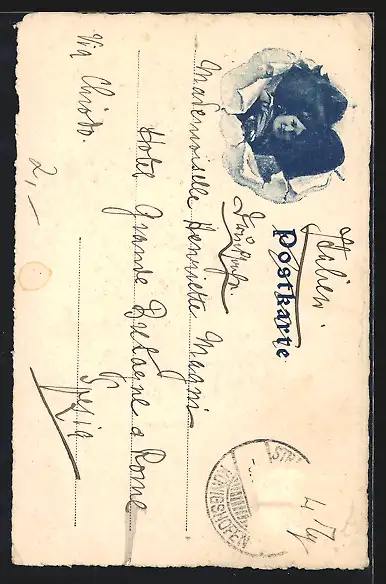 Postkarte
Italien.
Drucksache.
Mademoiselle Henriette Magni
Hotel Grande Bretagne & Rome
Spezia
Via Chiodo.
2,—
KÖNIGSHOFEN